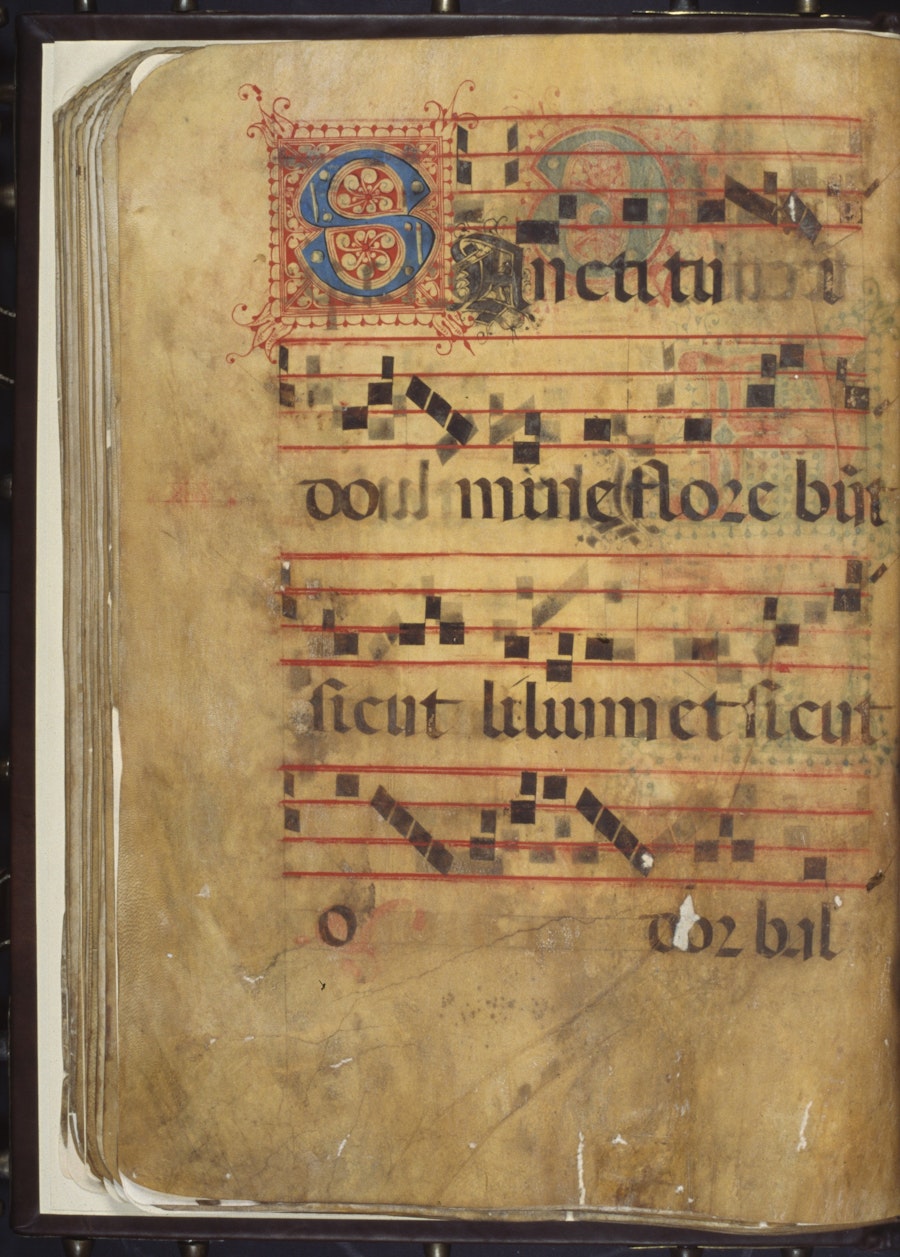 SAncti tui
do mine florebūt
sicut lilium et sicut
o dor bal